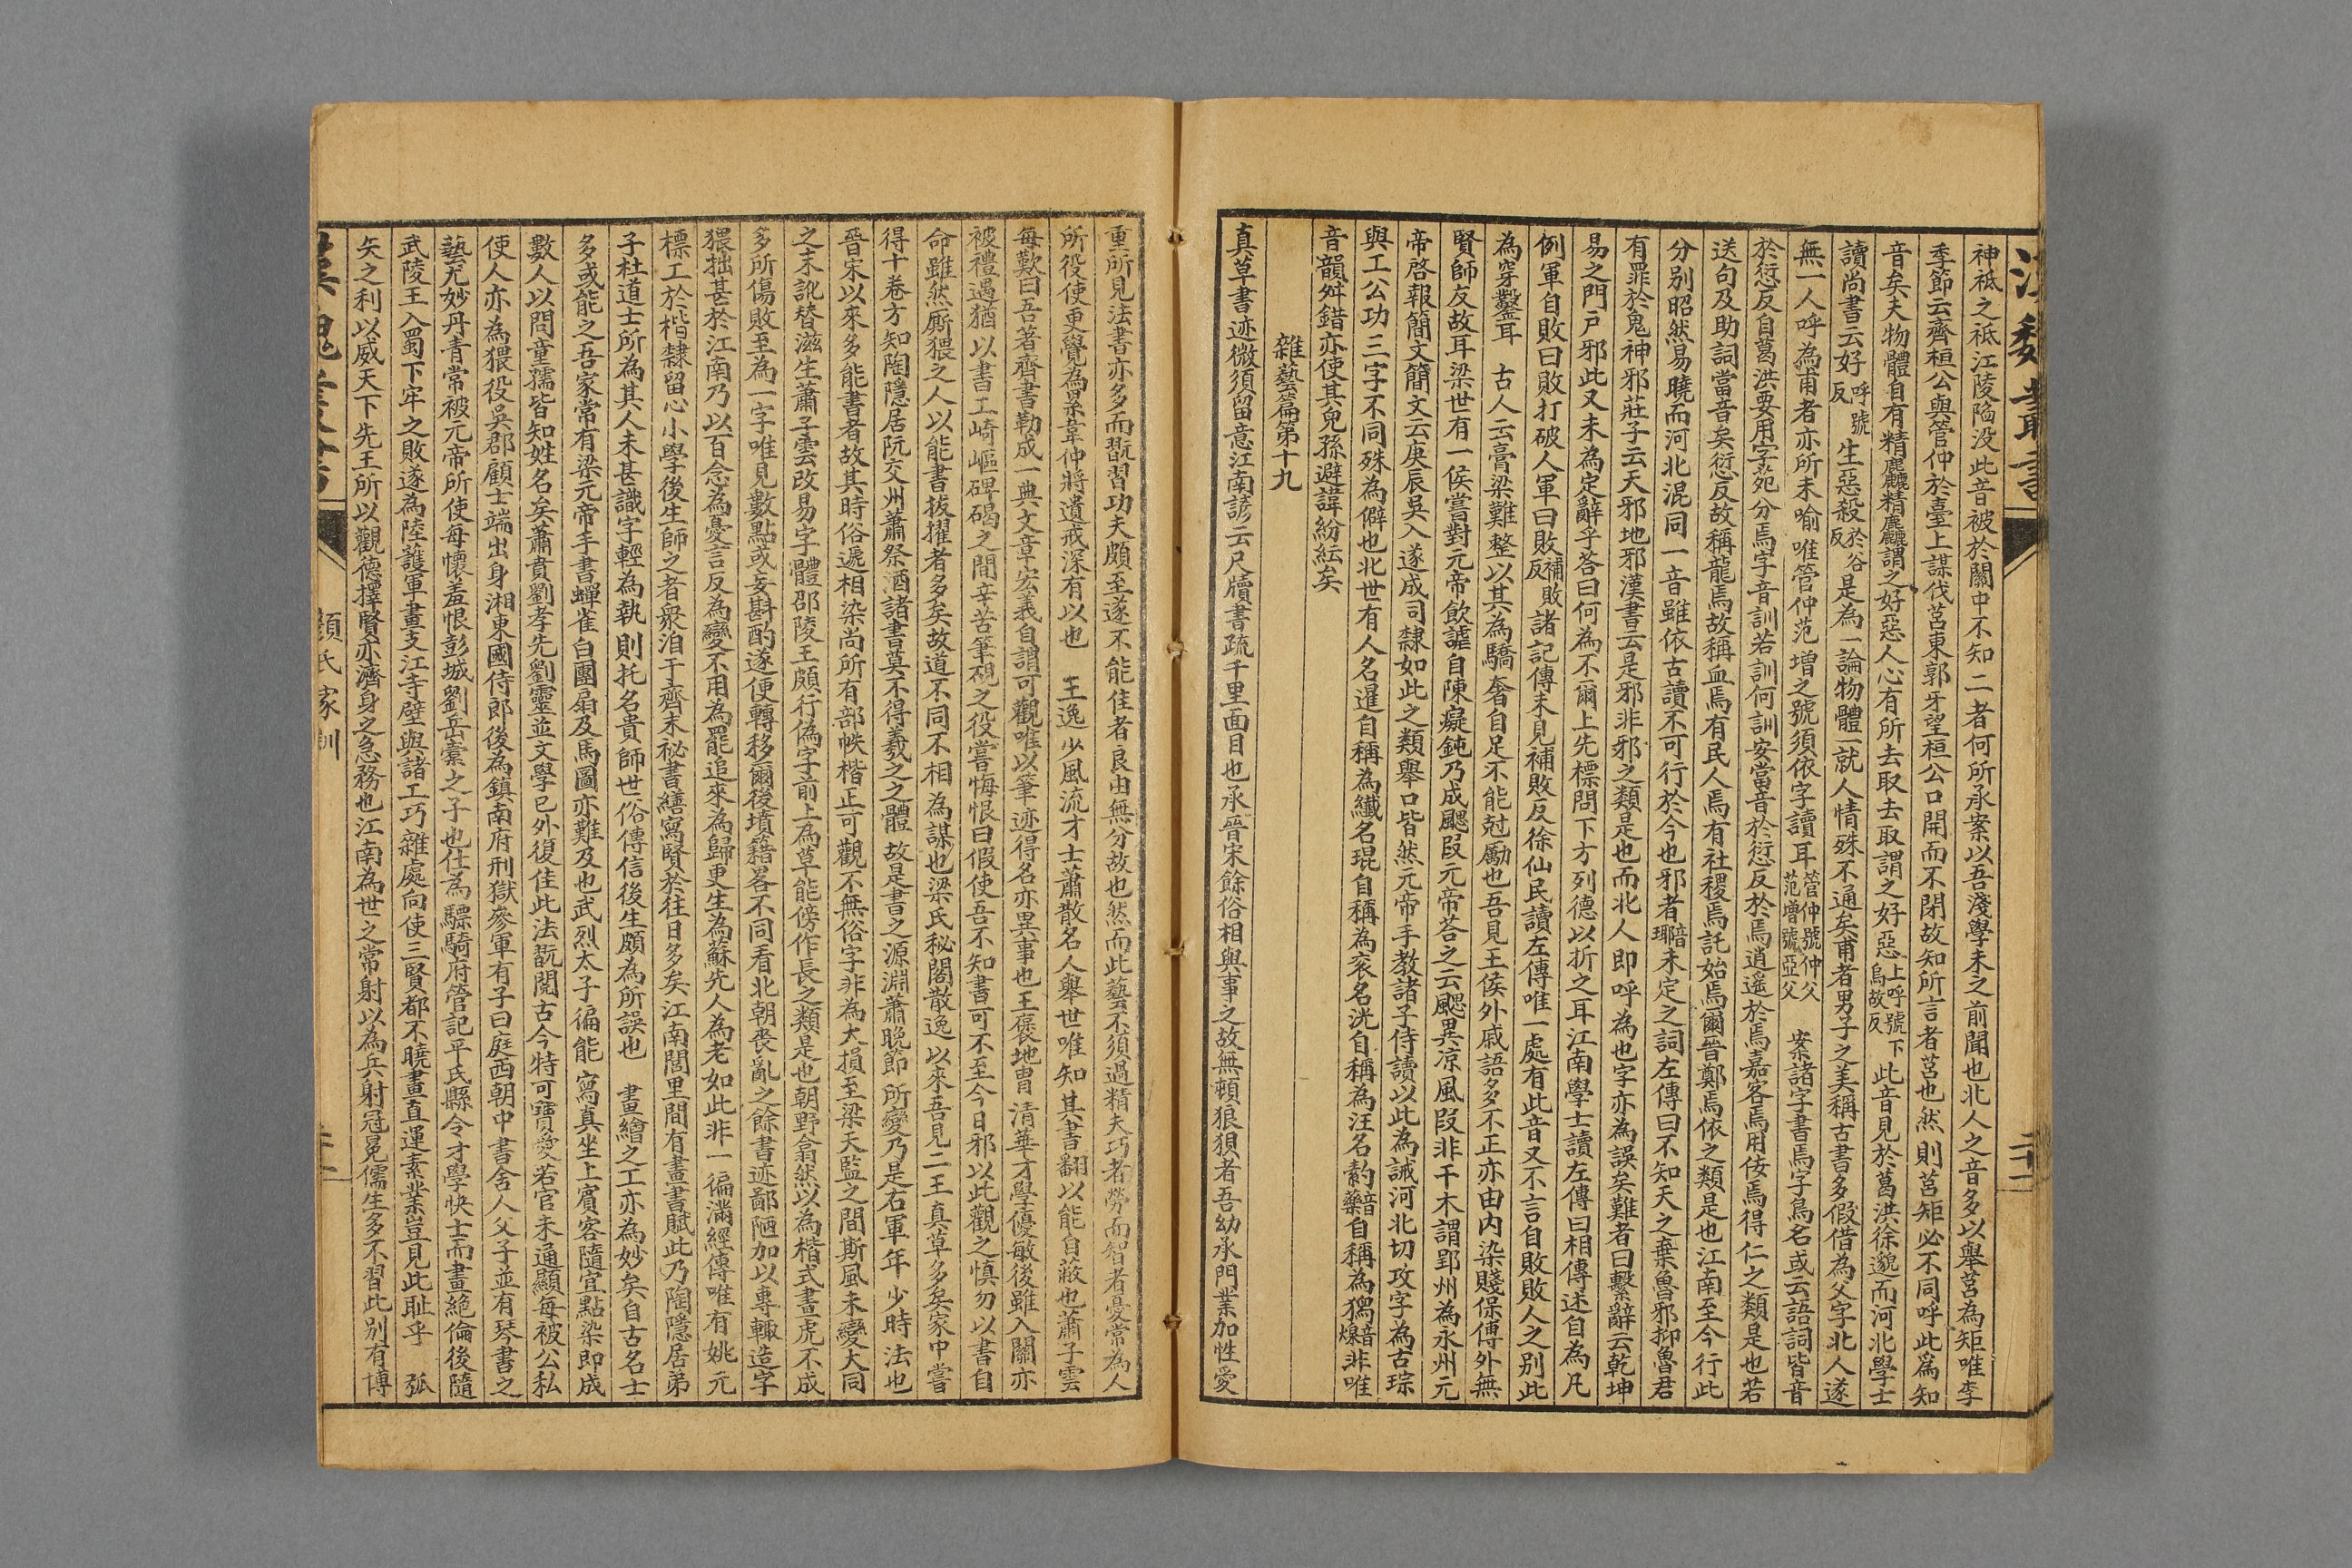 神祗之祗江陵陷没此音被於關中不知二者何所承案以吾淺學未之前聞也北人之音多以舉莒為矩唯李
季節云齊桓公與管仲於臺上謀伐莒東郭牙望桓公口開而不閉故知所言者莒也然則莒矩必不同呼此爲知
音矣夫物體自有精麤精麤謂之好惡人心有所去取去取謂之好惡上呼號下烏故反此音見於葛洪徐邈而河北學士
讀尚書云好呼號反生惡殺於谷反是為一論物體一就人情殊不通矣甫者男子之美稱古書多假借為父字北人遂
無一人呼為甫者亦所未喻唯管仲范增之號須依字讀耳管仲號仲父范增號亞父 案諸字書焉字鳥名或云語詞皆音
於愆反自葛洪要用字苑分焉字音訓若訓何訓安當音於愆反於焉逍遙於焉嘉客焉用佞焉得仁之類是也若
送句及助詞當音矣愆反故稱龍焉故稱血焉有民人焉有社稷焉託始焉爾晉鄭焉依之類是也江南至今行此
分別昭然易曉而河北混同一音雖依古讀不可行於今也邪者音瑘未定之詞左傳曰不知天之棄魯邪抑魯君
有罪於鬼神邪莊子云天邪地邪漢書云是邪非邪之類是也而北人即呼為也字亦為誤矣難者曰繫辭云乾坤
易之門戶邪此又未為定辭乎荅曰何為不爾上先標問下方列德以折之耳江南學士讀左傳曰相傳述自為凡
例軍自敗曰敗打破人軍曰敗補敗反諸記傳未見補敗反徐仙民讀左傳唯一處有此音又不言自敗敗人之别此
為穿鑿耳 古人云膏粱難整以其為驕奢自足不能尅勵也吾見王侯外戚語多不正亦由内染賤保傅外無
賢師友故耳梁世有一侯嘗對元帝飲謔自陳癡鈍乃成颸段元帝荅之云颸異凉風段非干木謂郢州為永州元
帝啓報簡文簡文云庚辰吳入遂成司隸如此之類舉口皆然元帝手教諸子侍讀以此為誡河北切攻字為古琮
與工公功三字不同殊為僻也北世有人名暹自稱為纖名琨自稱為衮名洸自稱為汪名𪐋音藥自稱為獡音爍非唯
音韻舛錯亦使其兒孫避諱紛紜矣
雜藝篇第十九
真草書迹微須留意江南諺云尺牘書疏千里面目也承晉宋餘俗相與事之故無頓狼狽者吾幼承門業加性愛
重所見法書亦多而翫習功夫頗至遂不能佳者良由無分故也然而此藝不須過精夫巧者勞而智者憂常為人
所役使更覺為累韋仲將遺戒深有以也 王逸少風流才士蕭散名人舉世唯知其書翻以能自蔽也蕭子雲
每歎曰吾著齊書勒成一典文章宏義自謂可觀唯以筆迹得名亦異事也王襃地胄清華才學優敏後雖入關亦
被禮遇猶以書工崎嶇碑碣之間辛苦筆硯之役嘗悔恨曰假使吾不知書可不至今日邪以此觀之慎勿以書自
命雖然廝猥之人以能書拔擢者多矣故道不同不相為謀也梁氏秘閣散逸以來吾見二王真草多矣家中嘗
得十卷方知陶隱居阮交州蕭祭酒諸書莫不得羲之之體故是書之源淵蕭晚節所變乃是右軍年少時法也
晉宋以來多能書者故其時俗遞相染尚所有部帙楷正可觀不無俗字非為大損至梁天監之間斯風未變大同
之末訛替滋生蕭子雲改易字體邵陵王頗行偽字前上為草能傍作長之類是也朝野翕然以為楷式畫虎不成
多所傷敗至為一字唯見數點或妄斟酌遂便轉移爾後墳籍畧不同看北朝喪亂之餘書迹鄙陋加以專輙造字
猥拙甚於江南乃以百念為憂言反為變不用為罷追來為歸更生為蘇先人為老如此非一徧滿經傳唯有姚元
標工於楷隸留心小學後生師之者衆洎于齊末祕書繕寫賢於往日多矣江南閭里間有畫書賦此乃陶隱居弟
子杜道士所為其人未甚識字輕為執則托名貴師世俗傳信後生頗為所誤也 畫繪之工亦為妙矣自古名士
多或能之吾家常有梁元帝手書蟬雀白團扇及馬圖亦難及也武烈太子徧能寫真坐上賓客隨宜點染即成
數人以問童孺皆知姓名矣蕭賁劉孝先劉靈並文學已外復佳此法翫閱古今特可寶愛若官未通顯每被公私
使人亦為猥役吳郡顧士端出身湘東國侍郎後為鎮南府刑獄參軍有子曰庭西朝中書舍人父子並有琴書之
藝尤妙丹青常被元帝所使每懷羞恨彭城劉岳橐之子也仕為驃騎府管記平氏縣令才學快士而畫絶倫後隨
武陵王入蜀下牢之敗遂為陸護軍畫支江寺壁與諸工巧雜處向使三賢都不曉畫直運素業豈見此耻乎 弧
矢之利以威天下先王所以觀德擇賢亦濟身之急務也江南為世之常射以為兵射冠冕儒生多不習此别有博
顏氏家訓